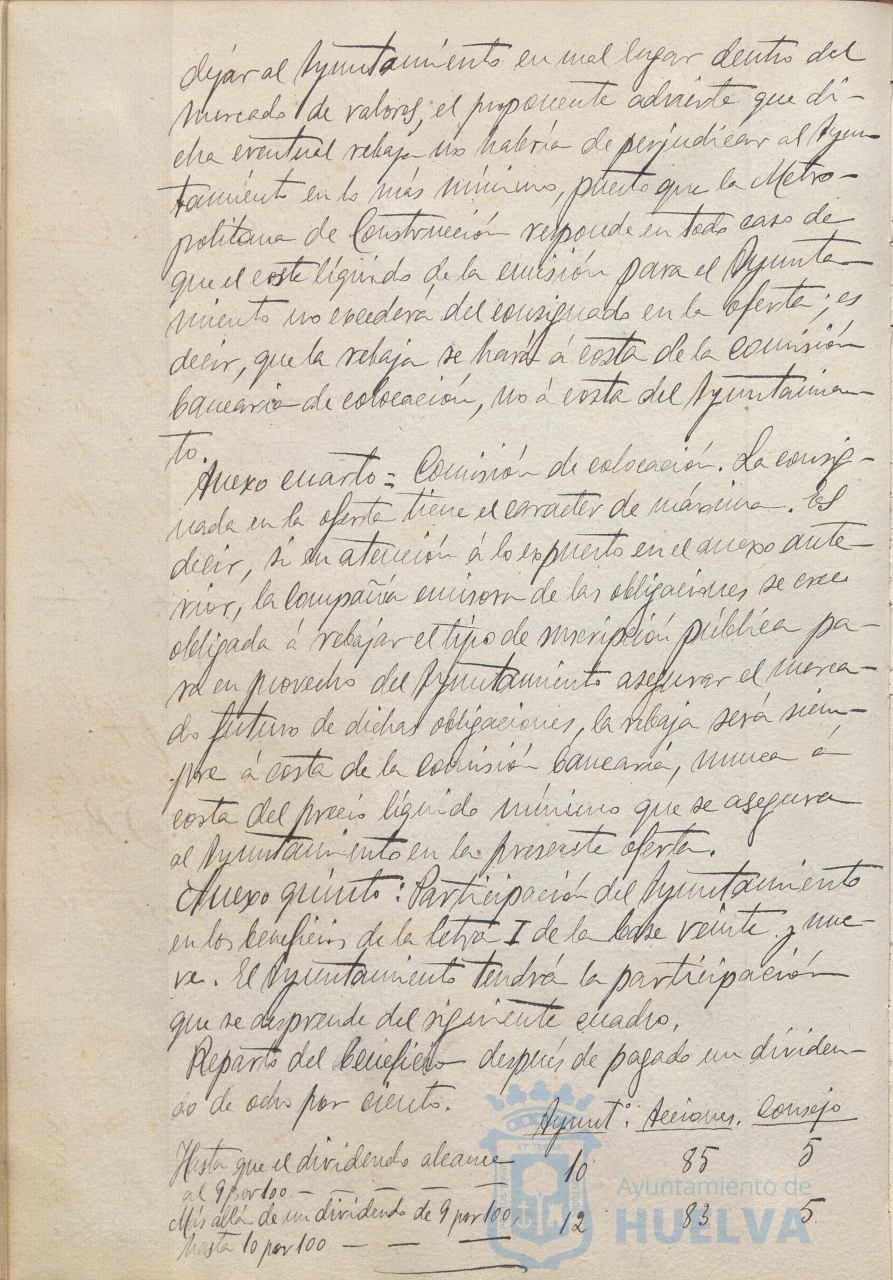 dejar al Ayuntamiento en mal lugar dentro del
mercado de valores, el proponente advierte que di-
cha eventual rebaja no habría de perjudicar al Ayun-
tamiento en lo más mínimo, puesto que la Metro-
politana de Construcción responde en todo caso de
que el coste líquido de la emisión para el Ayunta-
miento no excederá del consignado en la oferta; es
decir, que la rebaja se hará á costa de la comisión
bancaria de colocación, no á costa del Ayuntamien-
to.
Anexo cuarto = Comisión de colocación. La consig-
nada en la oferta tiene el caracter de máxima. Es
decir, si en atención á lo expuesto en el anexo ante-
rior, la Compañía emisora de las obligaciones se cree
obligada á rebajar el tipo de suscripción pública pa-
ra en provecho del Ayuntamiento asegurar el merca-
do futuro de dichas obligaciones, la rebaja será siem-
pre á costa de la comisión bancaria, nunca á
costa del precio líquido mínimo que se asegura
al Ayuntamiento en la presente oferta.
Anexo quinto: Participación del Ayuntamiento
en los beneficios de la letra I de la base veinte y nue-
ve. El Ayuntamiento tendrá la participación
que se desprende del siguiente cuadro.
Reparto del beneficio después de pagado un dividen-
do de ocho por ciento.
Ayuntº: Acciones. Consejo
Hasta que el dividendo alcance
al 9 por 100 — — — — 10 85 5
Más allá de un dividendo de 9 por 100,
hasta 10 por 100 — — — 12 83 5
Ayuntamiento de
HUELVA